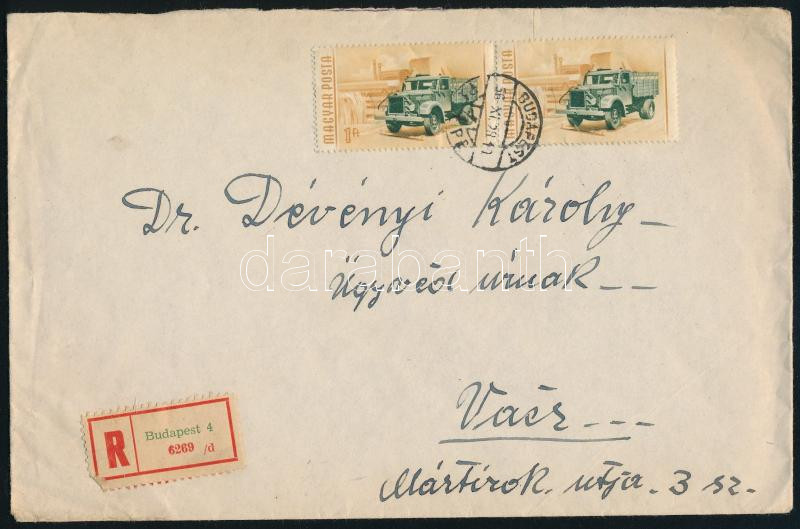 MAGYAR POSTA
1 Ft
BUDAPEST
56 XI 28
Dr. Dévényi Károly
Ügyvéd úrnak
darabanth
Vácz
Mártírok útja. 3 sz.
R
Budapest 4
6269 /d